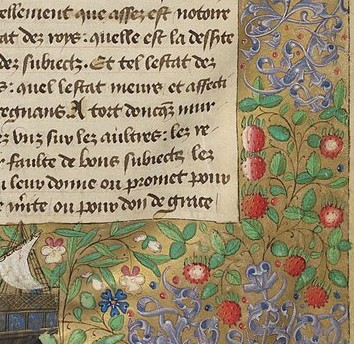 ellement que assez est notoire
tat des roys : quelle est la desste
des subiectz. Et tel lestat des
s : quel lestat meurs et affecti
regnans. A tort doncqz mur
ez vns sur les aultres : lez re
r faulte de bons subiectz lez
u leur donne ou promet pour
e mite ou pour don de grace